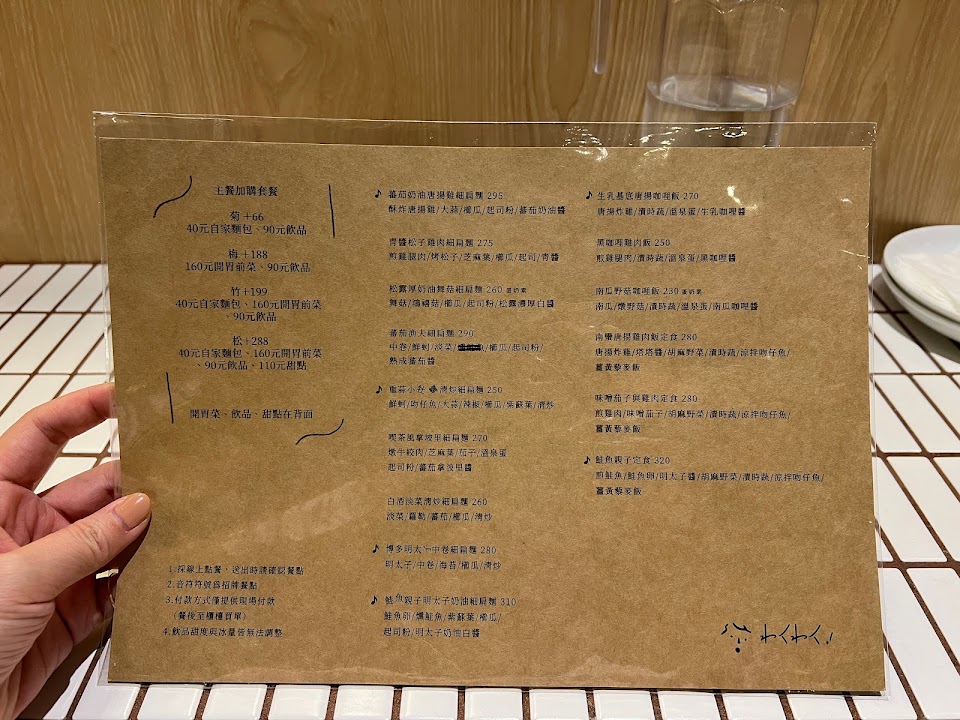 主餐加購套餐
菊 +66
40元自家麵包、90元飲品
梅 +188
160元開胃前菜、90元飲品
竹 +199
40元自家麵包、160元開胃前菜
、90元飲品
松 +288
40元自家麵包、160元開胃前菜
、90元飲品、110元甜點
開胃菜、飲品、甜點在背面
1.採線上點餐，送出時請確認餐點
2.音符符號為招牌餐點
3.付款方式僅提供現場付款
（餐後至櫃檯買單）
4.飲品甜度與冰量皆無法調整
♪ 蕃茄奶油唐揚雞細扁麵 295
酥炸唐揚雞/大蒜/櫛瓜/起司粉/蕃茄奶油醬
青醬松子雞肉細扁麵 275
煎雞腿肉/烤松子/芝麻葉/櫛瓜/起司/青醬
松露厚奶油舞菇細扁麵 260 蛋奶素
舞菇/鴻禧菇/櫛瓜/起司粉/松露薄厚白醬
蕃茄漁夫細扁麵 290
中卷/鮮蚵/淡菜/櫛瓜/起司粉/
熟成蕃茄醬
♪ 蒜小卷 清炒細扁麵 250
鮮蚵/吻仔魚/大蒜/辣椒/櫛瓜/紫蘇葉/清炒
喫茶風拿坡里細扁麵 270
燉牛絞肉/芝麻葉/茄子/溫泉蛋
起司粉/蕃茄拿波里醬
白酒淡菜清炒細扁麵 260
淡菜/羅勒/蕃茄/櫛瓜/清炒
♪ 博多明太子中卷細扁麵 280
明太子/中卷/海苔/櫛瓜/清炒
♪ 鮭魚親子明太子奶油細扁麵 310
鮭魚卵/燻鮭魚/紫蘇葉/櫛瓜/
起司粉/明太子奶油白醬
♪ 生乳基底唐揚咖哩飯 270
唐揚炸雞/漬時蔬/溫泉蛋/生乳咖哩醬
黑咖哩雞肉飯 250
煎雞腿肉/漬時蔬/溫泉蛋/黑咖哩醬
南瓜野菇咖哩飯 230 蛋奶素
南瓜/燉野菇/漬時蔬/溫泉蛋/南瓜咖哩醬
南蠻唐揚雞肉飯定食 280
唐揚炸雞/塔塔醬/胡麻野菜/漬時蔬/涼拌吻仔魚/
薑黃藜麥飯
味噌茄子與雞肉定食 280
煎雞肉/味噌茄子/胡麻野菜/漬時蔬/涼拌吻仔魚/
薑黃藜麥飯
♪ 鮭魚親子定食 320
煎鮭魚/鮭魚卵/明太子醬/胡麻野菜/漬時蔬/涼拌吻仔魚/
薑黃藜麥飯
わくわく